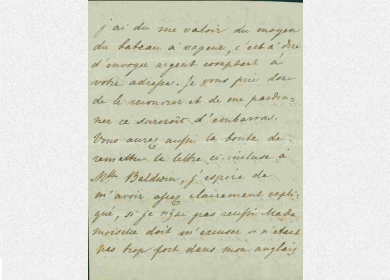 j'ai du me valoir du moyen
du bateau à vapeur, c'est à dire
d'envoyer argent comptant à
votre adresse. Je vous prie donc
de le recevoir et de me pardon-
ner ce surcroît d'embarras.
Vous aurez aussi la bonté de
remettre la lettre ci-incluse à
Mlle Baldwin, j'espère de
m'avoir assez clairement expli-
qué, si je n'ai pas reussi Made
moiselle doit m'excuser n'étant
pas trop fort dans mon anglais